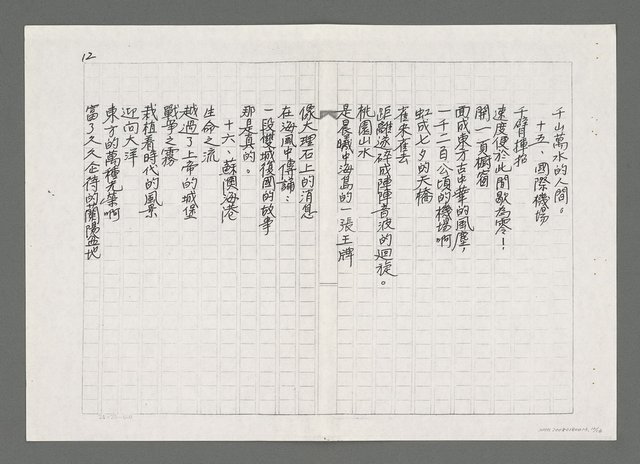 12
千山萬水的人間。
十五、國際機場
千臂揮招
速度便於此間歇為零！
開一頁櫥窗
面成東方古中華的風塵，
一千二百公頃的機場啊
虹成七夕的天橋
雀來雀去
距離遂碎成陣陣音波的迴旋。
桃園山水
是晨曦中海島的一張王牌
像大理石上的消息
在海風中傳誦：
一段雙城復國的故事
那是真的。
十六、蘇澳海港
生命之流
越過了上帝的城堡
戰爭之霧
栽植着時代的風景
迎向大洋
東方的萬種光榮啊
富了久久企待的蘭陽盆地